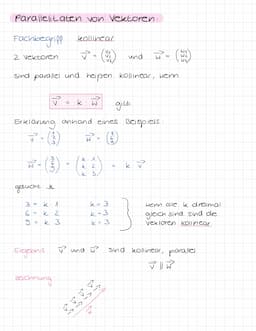 Parallelitäten von Vektoren
Fachbegriff kollinear
2 Vektoren v = (v1 v2 v3) und w = (w1 w2 w3)
sind parallel und heißen kollinear, wenn
v = k w gilt
Erklärung anhand eines Beispiels:
v = (1 2 3) w = (3 6 9)
w = (3 6 9) = (k 1 k 2 k 3) = k v
gesucht k
3 = k 1 k = 3 wenn alle k dreimal
6 = k 2 k = 3 gleich sind sind die
9 = k 3 k = 3 Vektoren kollinear
v und w sind kollinear, parallel
v || w
Zeichnung